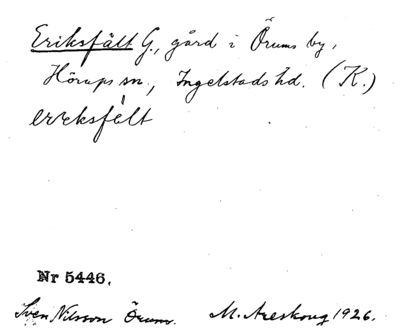 Eriksfält G., gård i Örums by,
Hörups sn., Ingelstads hd. (K.)
erıksfẹlt
Nr 5446.
Sven Nilsson Örum. M. Areskoug 1926.